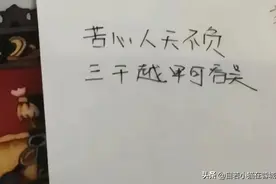 苦心人天不负
三千越甲可吞吴
头条